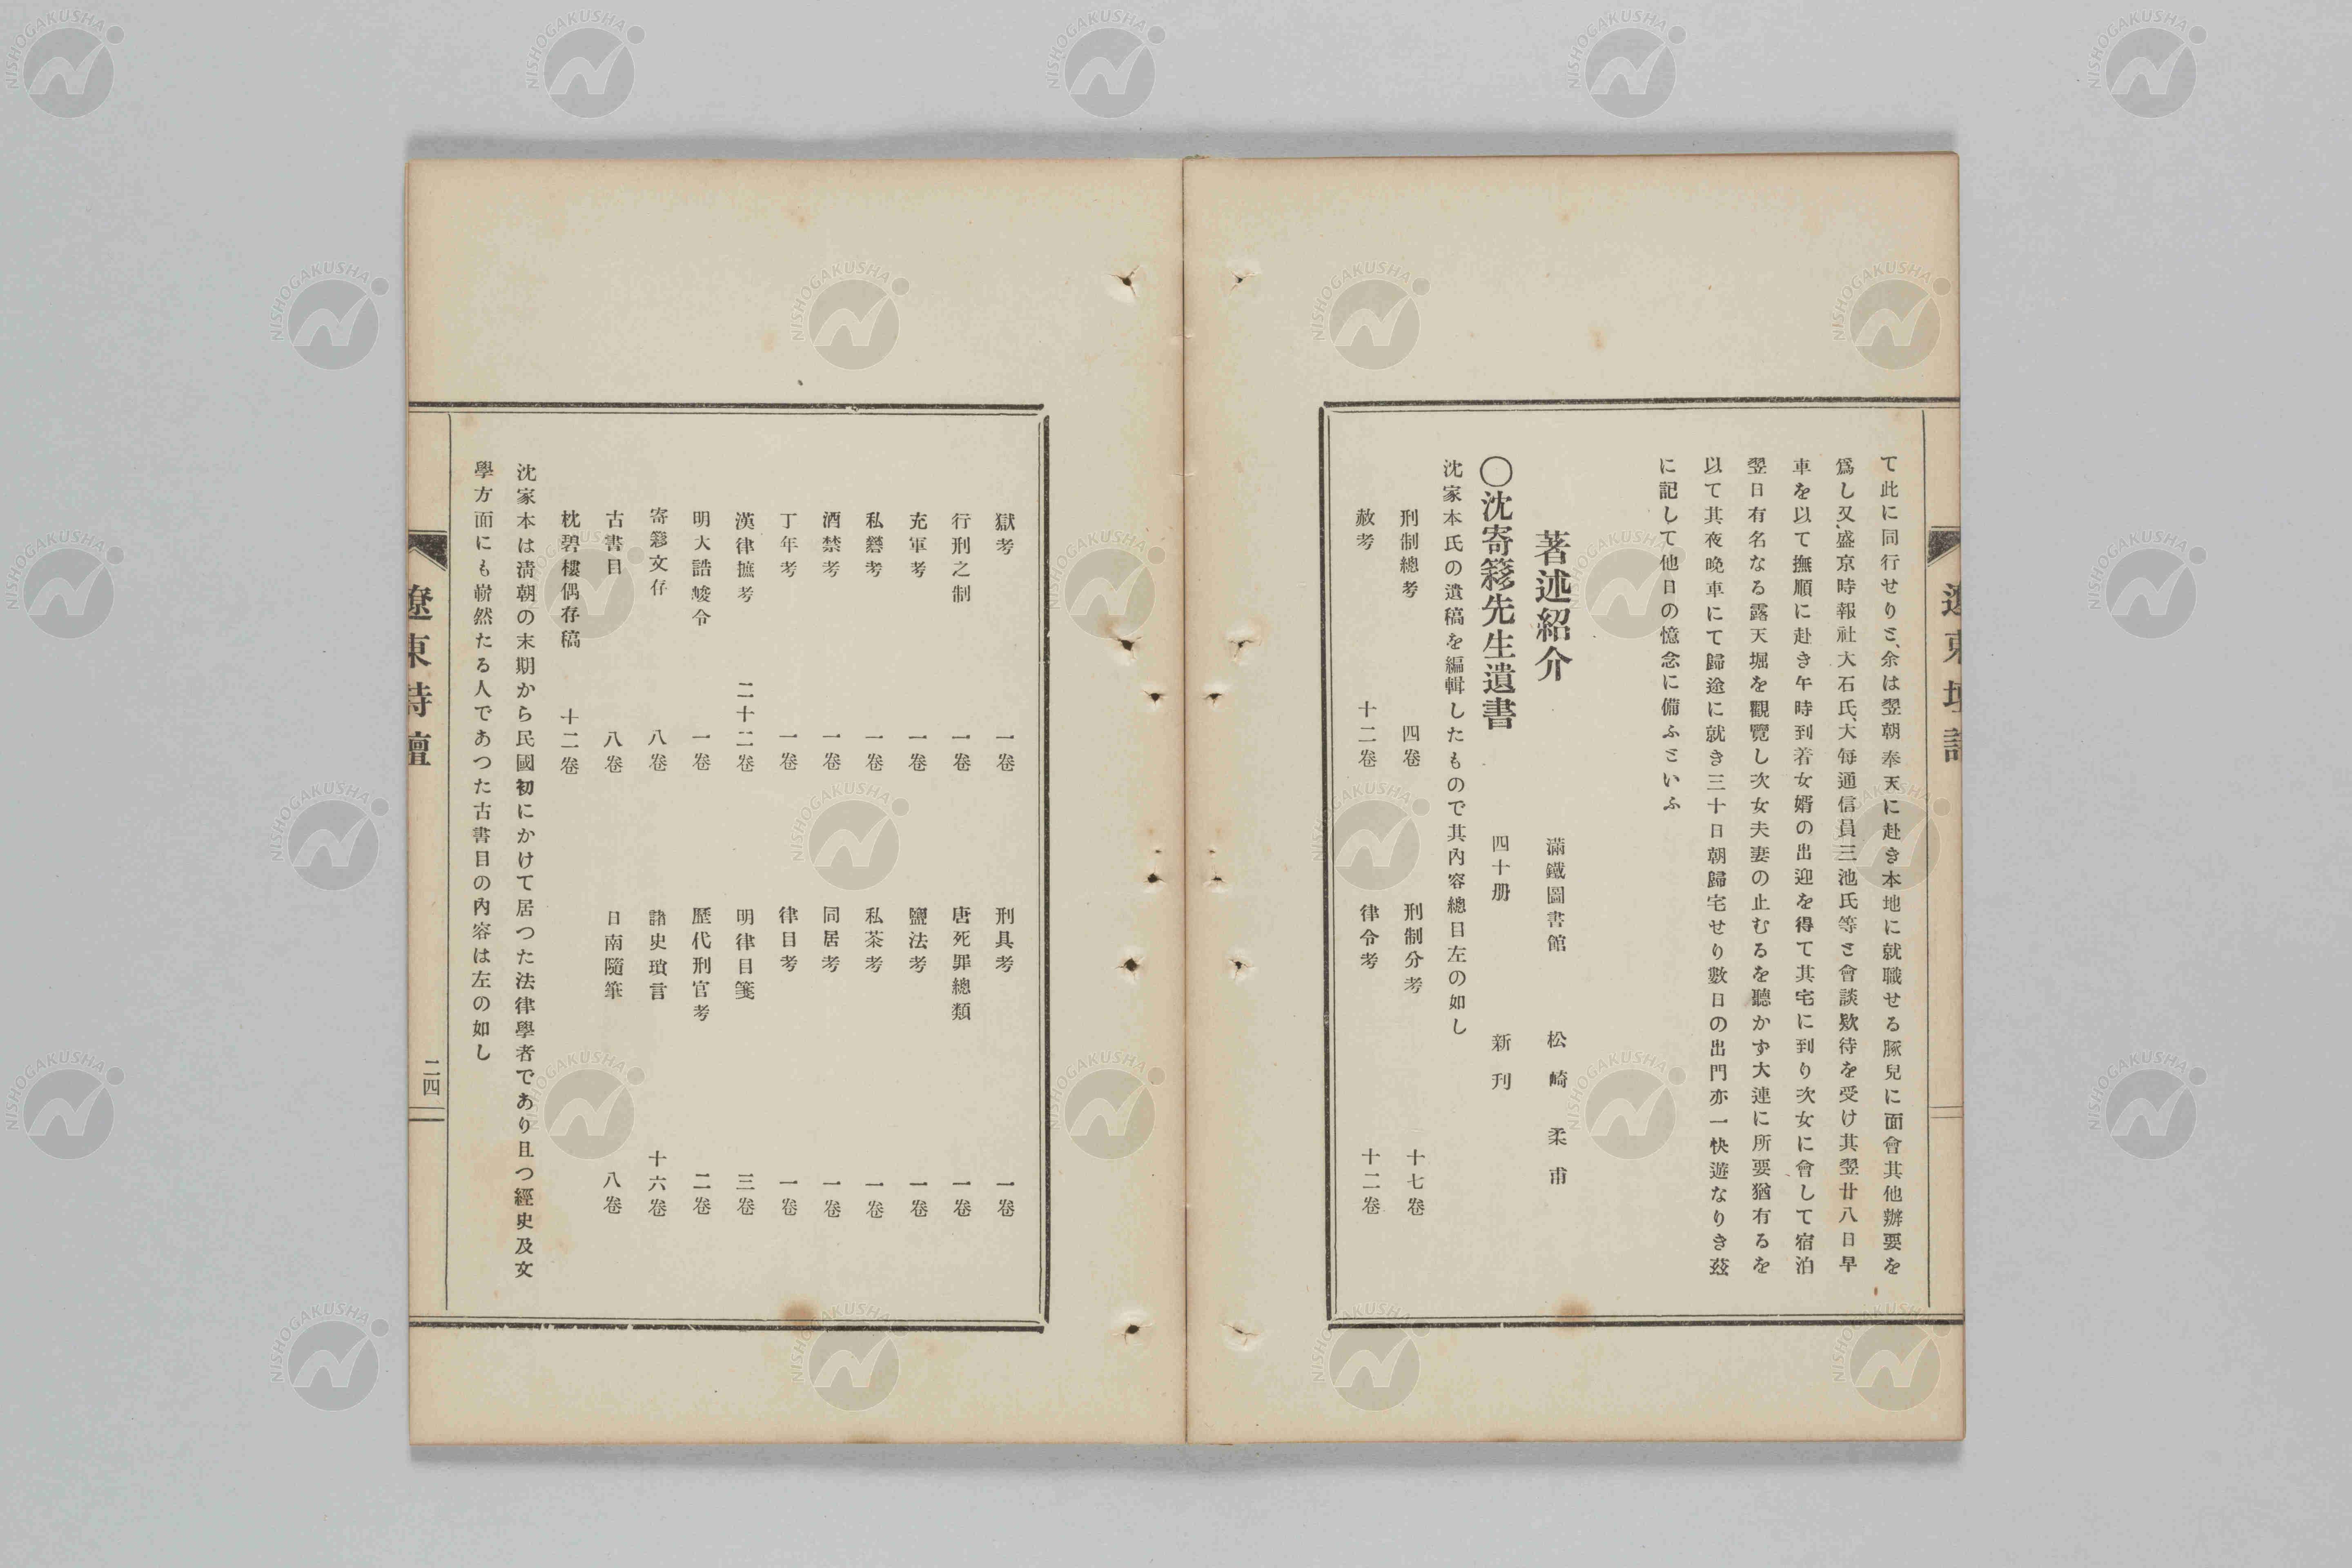 て此に同行せりと、余は翌朝奉天に赴き本地に就職せる豚兒に面會其他辦要を
爲し又、盛京時報社大石氏、大每通信員三池氏等と會談欵待を受け其翌廿八日早
車を以て撫順に赴き午時到着女婿の出迎を得て其宅に到り次女に會して宿泊
翌日有名なる露天堀を觀覽し次女夫妻の止むるを聽かず大連に所要猶有るを
以て其夜晚車にて歸途に就き三十日朝歸宅せり數日の出門亦一快遊なりき茲
に記して他日の憶念に備ふといふ
著述紹介 滿鐵圖書館 松崎柔甫
〇沈寄簃先生遺書 四十册 新刊
沈家本氏の遺稿を編輯したもので其內容總目左の如し
刑制總考 四卷 刑制分考 十七卷
赦考 十二卷 律令考 十二卷
獄考 一卷 刑具考 一卷
行刑之制 一卷 唐死罪總類 一卷
充軍考 一卷 鹽法考 一卷
私礬考 一卷 私茶考 一卷
酒禁考 一卷 同居考 一卷
丁年考 一卷 律目考 一卷
漢律摭考 二十二卷 明律目箋 三卷
明大誥峻令 一卷 歷代刑官考 二卷
寄簃文存 八卷 諸史瑣言 十六卷
古書目 八卷 日南隨筆 八卷
枕碧樓偶存稿 十二卷
沈家本は淸朝の末期から民國初にかけて居つた法律學者であり且つ經史及文
學方面にも嶄然たる人であつた古書目の內容は左の如し
遼東詩壇 二四
NISHOGAKUSHA